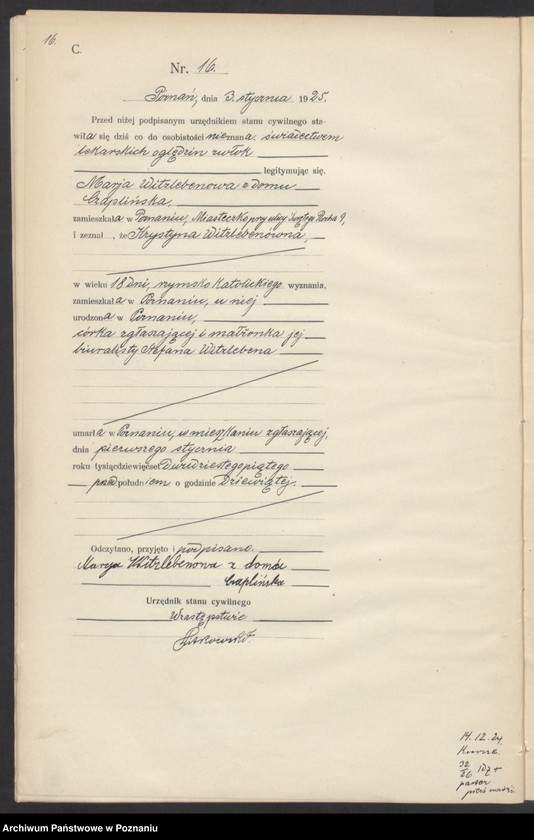 16.
C.
Nr. 16.
Poznań, dnia 3. stycznia 1925.
Przed niżej podpisanym urzędnikiem stanu cywilnego sta-
wiła się dziś co do osobistości nieznana, świadectwem
lekarskich oględzin zwłok
legitymując się.
Marja Witzlebenowa z domu
Czaplińska,
zamieszkała w Poznaniu, Miasteczko przy ulicy Świętego Rocha 9,
i zeznał , że Krystyna Witzlebenówna,
w wieku 18 dni, rzymsko katolickiego wyznania,
zamieszkała w Poznaniu, u niej
urodzona w Poznaniu,
córka zgłaszającej i małżonka jej
biuralisty Stefana Witzlebena
umarła w Poznaniu, w mieszkaniu zgłaszającej,
dnia pierwszego stycznia
roku tysiącdziewięćset dwudziestegopiątego
przedpołudniem o godzinie dziewiątej.
Odczytano, przyjęto i podpisano.
Marja Witzlebenowa z domu
Czaplińska
Urzędnik stanu cywilnego
W zastępstwie
14. 12. 24,
Archiwum Państwowe w Poznaniu